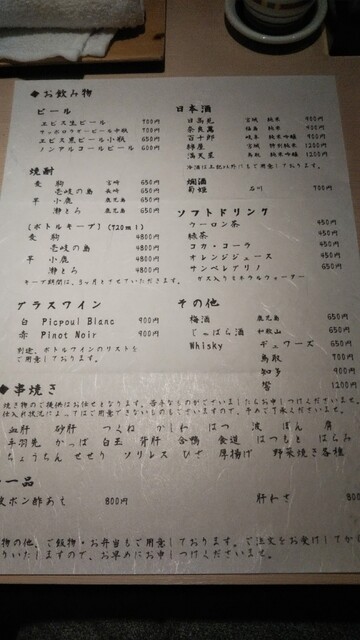 ◆お飲み物
ビール
エビス生ビール 700円
サッポロラガービール中瓶 700円
エビス黒ビール小瓶 650円
ノンアルコールビール 600円
焼酎
麦 駒 宮崎 650円
壱岐の島 長崎 650円
芋 小鹿 鹿児島 650円
瀞とろ 鹿児島 650円
(ボトルキープ) (720ml)
麦 駒 4800円
壱岐の島 4800円
芋 小鹿 4800円
瀞とろ 4800円
キープ期間は、3ヶ月とさせていただきます。
グラスワイン
白 Picpoul Blanc 900円
赤 Pinot Noir 900円
別途、ボトルワインのリストを
ご用意しております。
日本酒
日高見 宮城 純米 900円
奈良萬 福島 純米 900円
百十郎 岐阜 純米吟醸 900円
綿屋 宮城 特別純米 1200円
満天星 鳥取 純米吟醸 1200円
冷酒は上記以外にもご用意しております。
燗酒
菊姫 石川 700円
ソフトドリンク
ウーロン茶 450円
緑茶 450円
コカ・コーラ 450円
オレンジジュース 450円
サンペレグリノ 650円
ガス入りミネラルウォーター
その他
梅酒 鹿児島 650円
じゃばら酒 和歌山 650円
Whisky デュワーズ 650円
鳥取 700円
知多 900円
響 1200円
◆串焼き
焼き物のご提供はお任せとなります。苦手なものがございましたらお申しつけくださいませ。
仕入れ状況によってはご用意できないものもございますので、予めご了承くださいませ。
血肝 砂肝 つくね かしわ はつ 波 ぼん 肩
手羽先 かっぱ 白玉 背肝 合鴨 食道 はつもと はらみ
ちょうちん せせり ソリレス ひざ 厚揚げ 野菜焼き各種
一品
皮ポン酢あえ 800円
肝わさ 800
物の他、ご飯物・お弁当もご用意しております。ご注文をお受けしてから
いたしますので、お早めにお申しつけくださいませ。